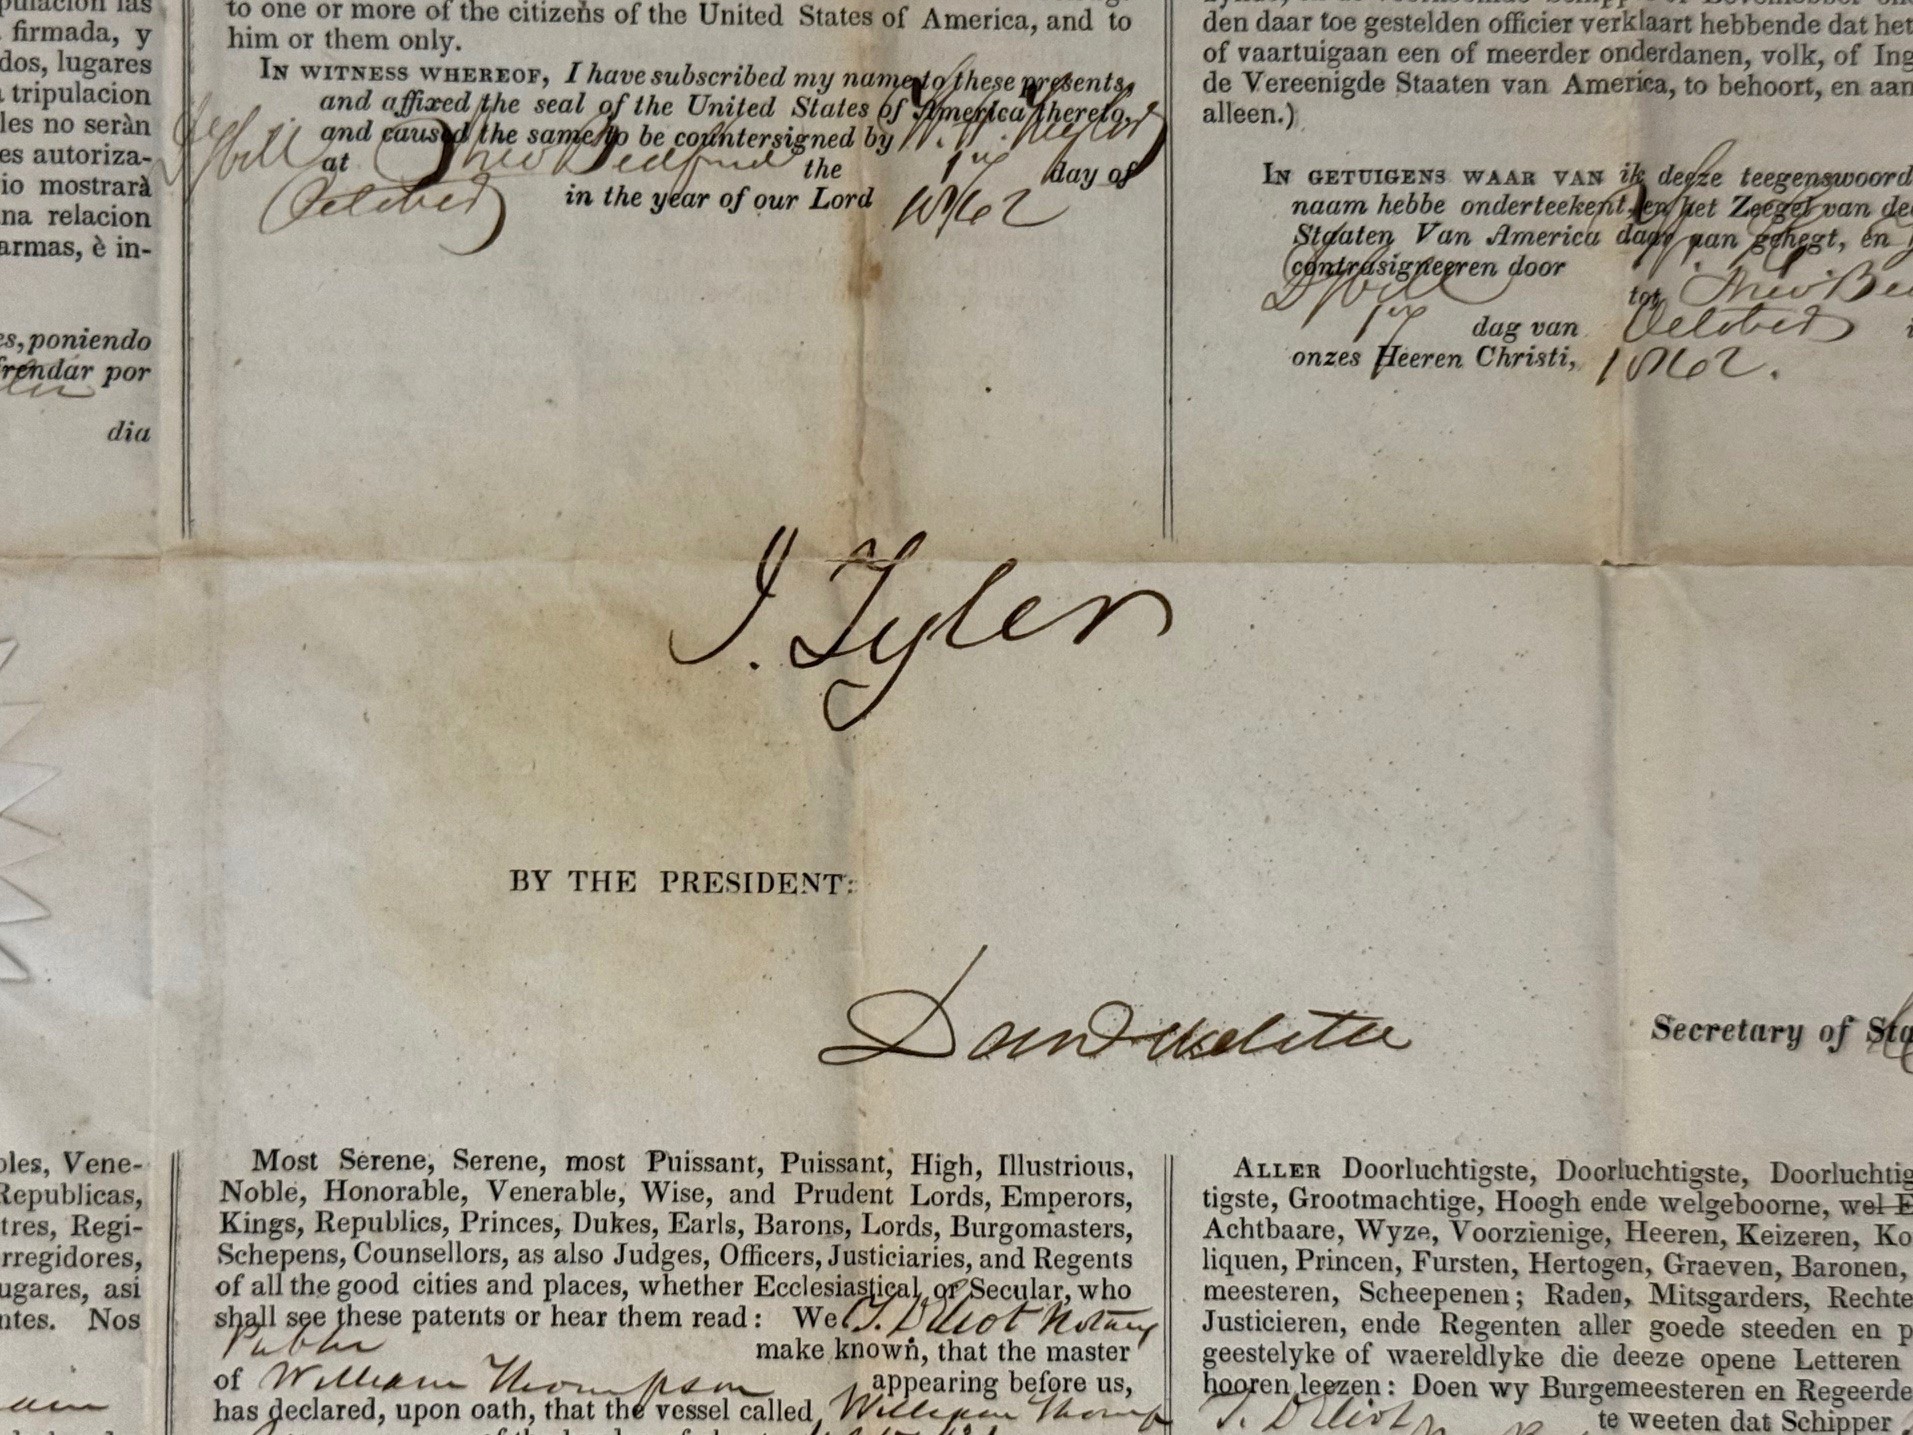 pulacion las
firmada, y
dos, lugares
tripulacion
les no seràn
es autoriza-
io mostrarà
na relacion
armas, è in-
es, poniendo
frendar por
dia
to one or more of the citizens of the United States of America, and to
him or them only.
IN WITNESS WHEREOF, I have subscribed my name to these presents,
and affixed the seal of the United States of America thereto,
and caused the same to be countersigned by
at New Bedford the 17 day of
October in the year of our Lord 1842
den daar toe gestelden officier verklaart hebbende dat het
of vaartuigaan een of meerder onderdanen, volk, of Ing
de Vereenigde Staaten van America, to behoort, en aan
alleen.)
IN GETUIGENS WAAR VAN ik deeze teegenswoord
naam hebbe onderteekent, en het Zeegel van de
Staaten Van America daar aan gehegt, en
contrasigneeren door
tot New Be
17 dag van October i
onzes Heeren Christi, 1842.
J. Tyler
BY THE PRESIDENT:
Dan Webster
Secretary of Sta
oles, Vene-
Republicas,
tres, Regi-
rregidores,
ugares, asi
ntes. Nos
Most Serene, Serene, most Puissant, Puissant, High, Illustrious,
Noble, Honorable, Venerable, Wise, and Prudent Lords, Emperors,
Kings, Republics, Princes, Dukes, Earls, Barons, Lords, Burgomasters,
Schepens, Counsellors, as also Judges, Officers, Justiciaries, and Regents
of all the good cities and places, whether Ecclesiastical or Secular, who
shall see these patents or hear them read: We T. D. Eliot Notary
Public make known, that the master
of William Thompson appearing before us,
has declared, upon oath, that the vessel called William Thomp
ALLER Doorluchtigste, Doorluchtigste, Doorluchtig
tigste, Grootmachtige, Hoogh ende welgeboorne, wel E
Achtbaare, Wyze, Voorzienige, Heeren, Keizeren, Ko
liquen, Princen, Fursten, Hertogen, Graeven, Baronen,
meesteren, Scheepenen; Raden, Mitsgarders, Rechte
Justicieren, ende Regenten aller goede steeden en p
geestelyke of waereldlyke die deeze opene Letteren
hooren leezen: Doen wy Burgemeesteren en Regeerde
T. D. Eliot te weeten dat Schipper